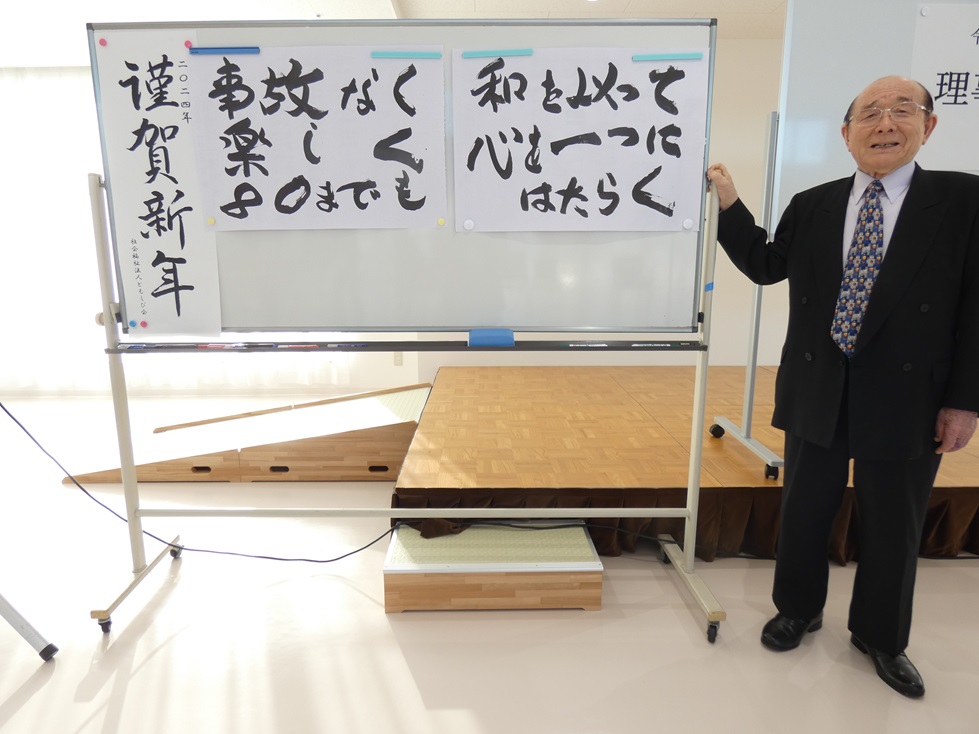 令
理事
和を以って
心を一つに
はたらく
事故なく
楽しく
80までも
二〇二四年
謹賀新年
社会福祉法人ともしび会